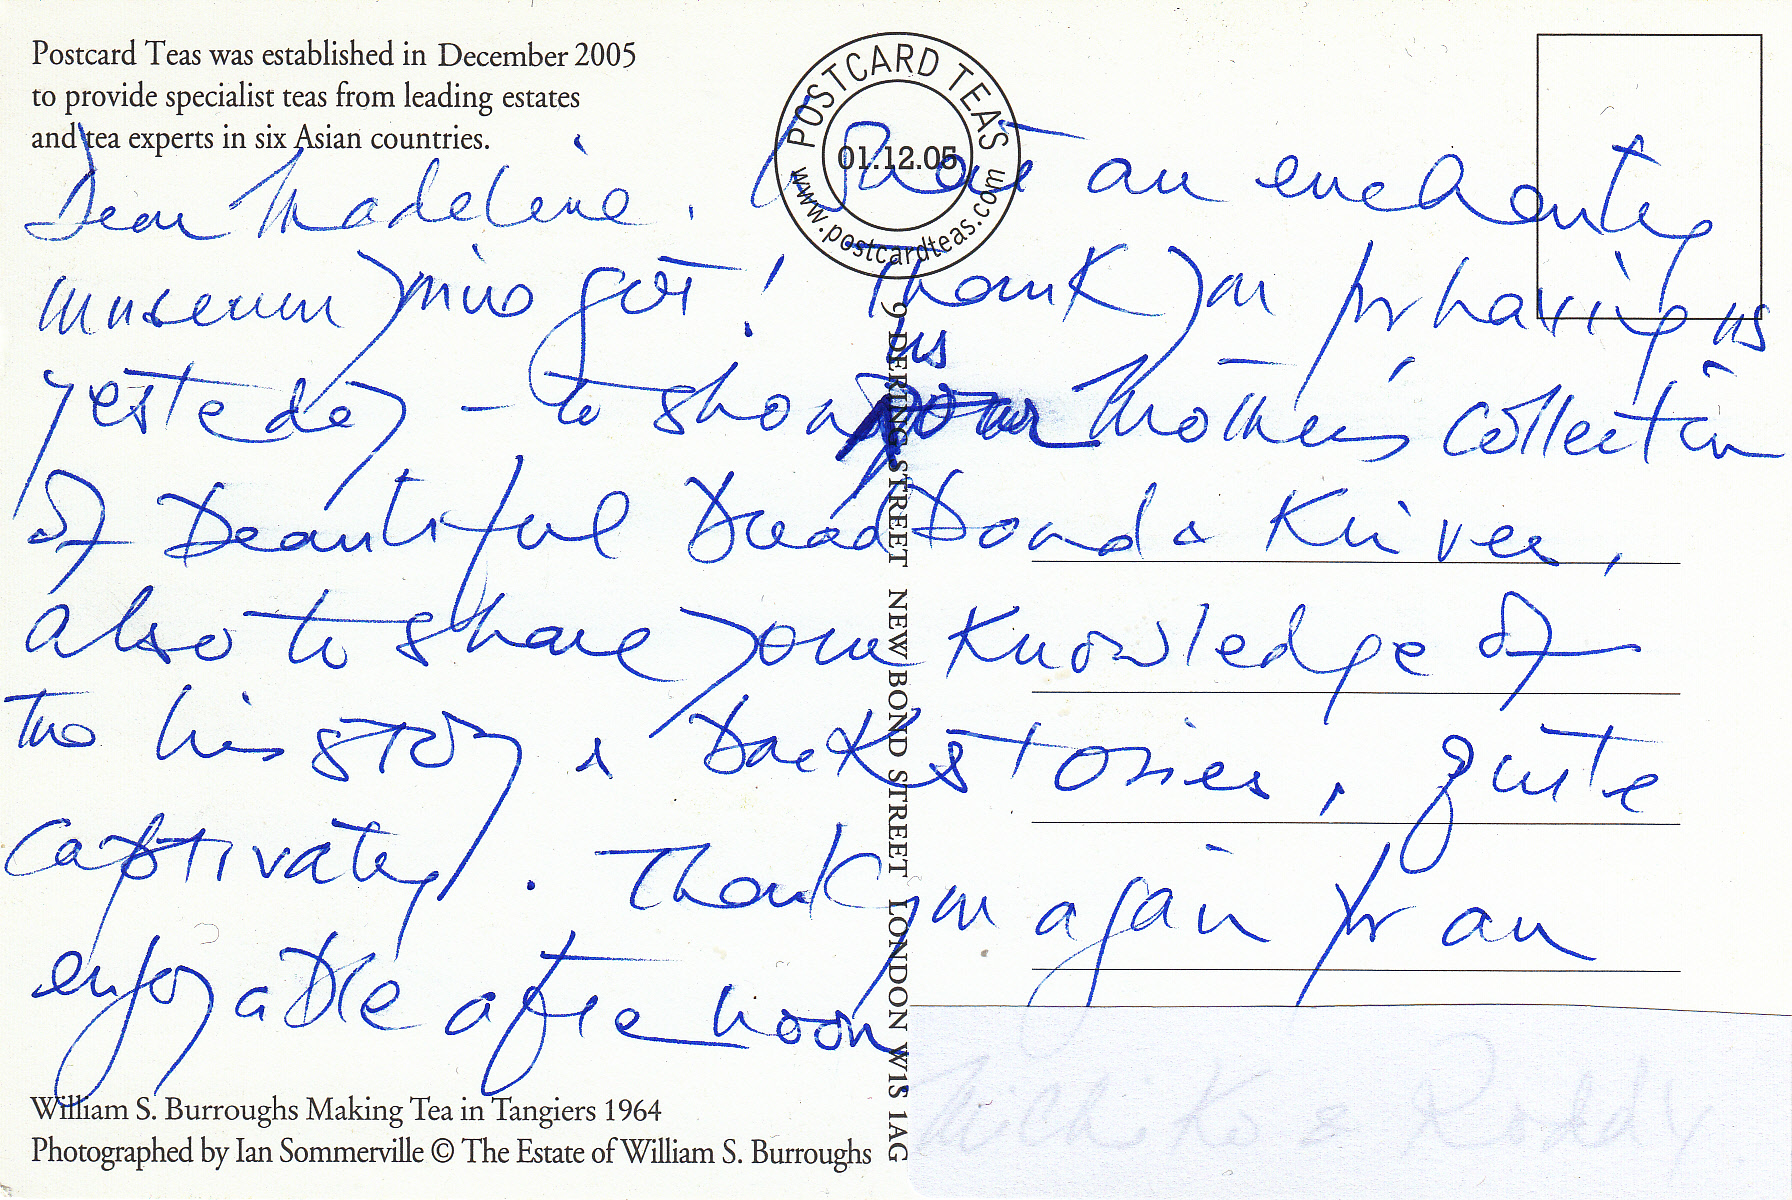 Postcard Teas was established in December 2005
to provide specialist teas from leading estates
and tea experts in six Asian countries.
POSTCARD TEAS
01.12.05
www.postcardteas.com
Dear Madeline. What an enchanting
museum you've got! Thank you for having us
yesterday - to show us your Mother's collection
of Beautiful Bread Board & Knives,
also to share your knowledge of
the history & Back stories, quite
captivating. Thank you again for an
enjoyable afternoon
Michiko & Roddy
9 DERING STREET NEW BOND STREET LONDON W1S 1AG
William S. Burroughs Making Tea in Tangiers 1964
Photographed by Ian Sommerville © The Estate of William S. Burroughs